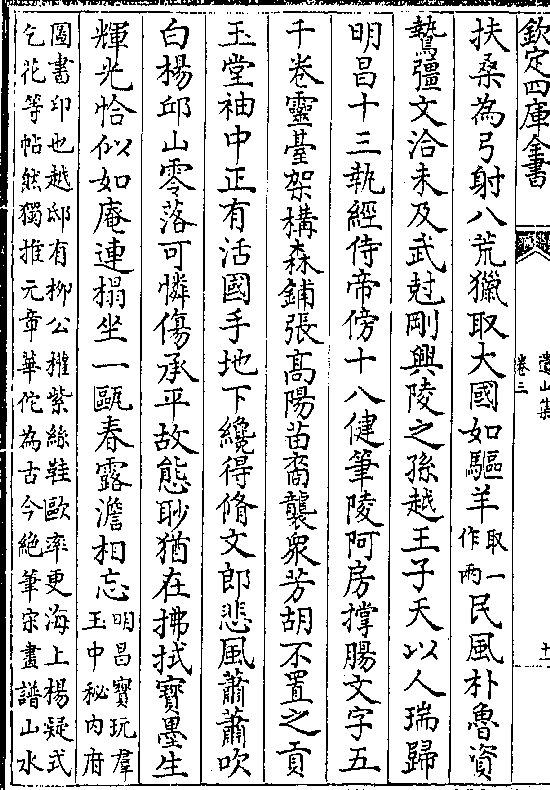 欽定四庫全書
遺山集
卷三
十一
扶桑為弓射八荒獵取大國如驅羊取一作兩民風朴魯資
鷙彊文洽未及武尅剛興陵之孫越王子天以人瑞歸
明昌十三執經侍帝傍十八健筆陵阿房撑腸文字五
千卷靈䑓架構森鋪張髙陽苗裔襲衆芳胡不置之貢
玉堂袖中正有活國手地下纔得脩文郎悲風蕭蕭吹
白楊邱山零落可憐傷承平故態耿猶在拂拭寶墨生
輝光恰似如庵連榻坐一甌春露澹相忘明昌寶玩羣玉中秘内府
圖書印也越邸有柳公權紫絲鞋歐率更海上楊凝式
乞花等帖然獨推元章華佗為古今絶筆宗畫譜山水